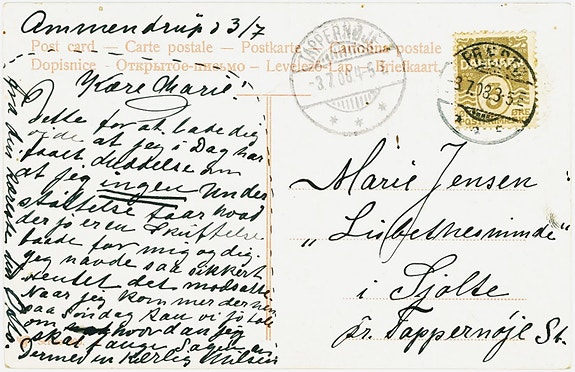 Ammendrup d 3/7
Post card — Carte postale — Postkarte — Cartolina postale
Dopisnice — Открытое-письмо — Levelező-Lap — Briefkaart
Kære Marie!
Dette for at lade dig
vide at jeg i Dag har
faaet Meddelelse om
at jeg ingen Under
støttelse faar hvad
der jo er en Skuffelse
baade for mig og dig.
jeg havde saa sikkert
ventet det modsatte.
Naar jeg kommer derned
paa Søndag kan vi jo tale
om hvordan jeg
skal fange Sagen an
Dermed en Kærlig Hilsen
fra din Kæreste
TAPPERNØJE
3.7.08 4-5
3.7.08.3-5
ØRE
Marie Jensen
„Lisbethesminde"
i Sjolte
pr. Tappernøje St.